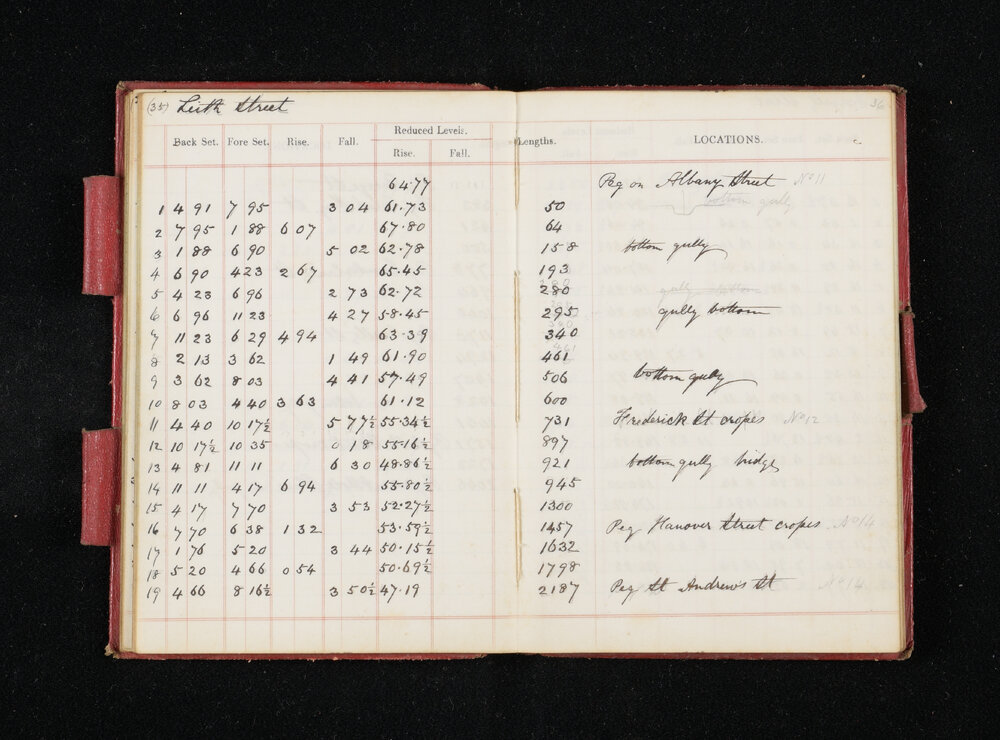 (35) Leith Street
36
Back Set. Fore Set. Rise. Fall. Reduced Levels. Rise. Fall. Lengths. LOCATIONS.
64.77 Peg on Albany Street No 11
1 4 91 7 95 3 04 61.73 50 bottom gully
2 7 95 1 88 6 07 67.80 64
3 1 88 6 90 5 02 62.78 158 bottom gully
4 6 90 4 23 2 67 65.45 193
5 4 23 6 96 2 73 62.72 280 gully bottom
6 6 96 11 23 4 27 58.45 295 gully bottom
7 11 23 6 29 4 94 63.39 340
8 2 13 3 62 1 49 61.90 461
9 3 62 8 03 4 41 57.49 506 bottom gully
10 8 03 4 40 3 63 61.12 600
11 4 40 10 17½ 5 77½ 55.34½ 731 Frederick St cropes No 12
12 10 17½ 10 35 0 18 55.16½ 897
13 4 81 11 11 6 30 48.86½ 921 bottom gully bridge
14 11 11 4 17 6 94 55.80½ 945
15 4 17 7 70 3 53 52.27½ 1300
16 7 70 6 38 1 32 53.59½ 1457 Peg Hanover Street cropes No 14
17 1 76 5 20 3 44 50.15½ 1632
18 5 20 4 66 0 54 50.69½ 1798
19 4 66 8 16½ 3 50½ 47.19 2187 Peg St Andrew's St No 14